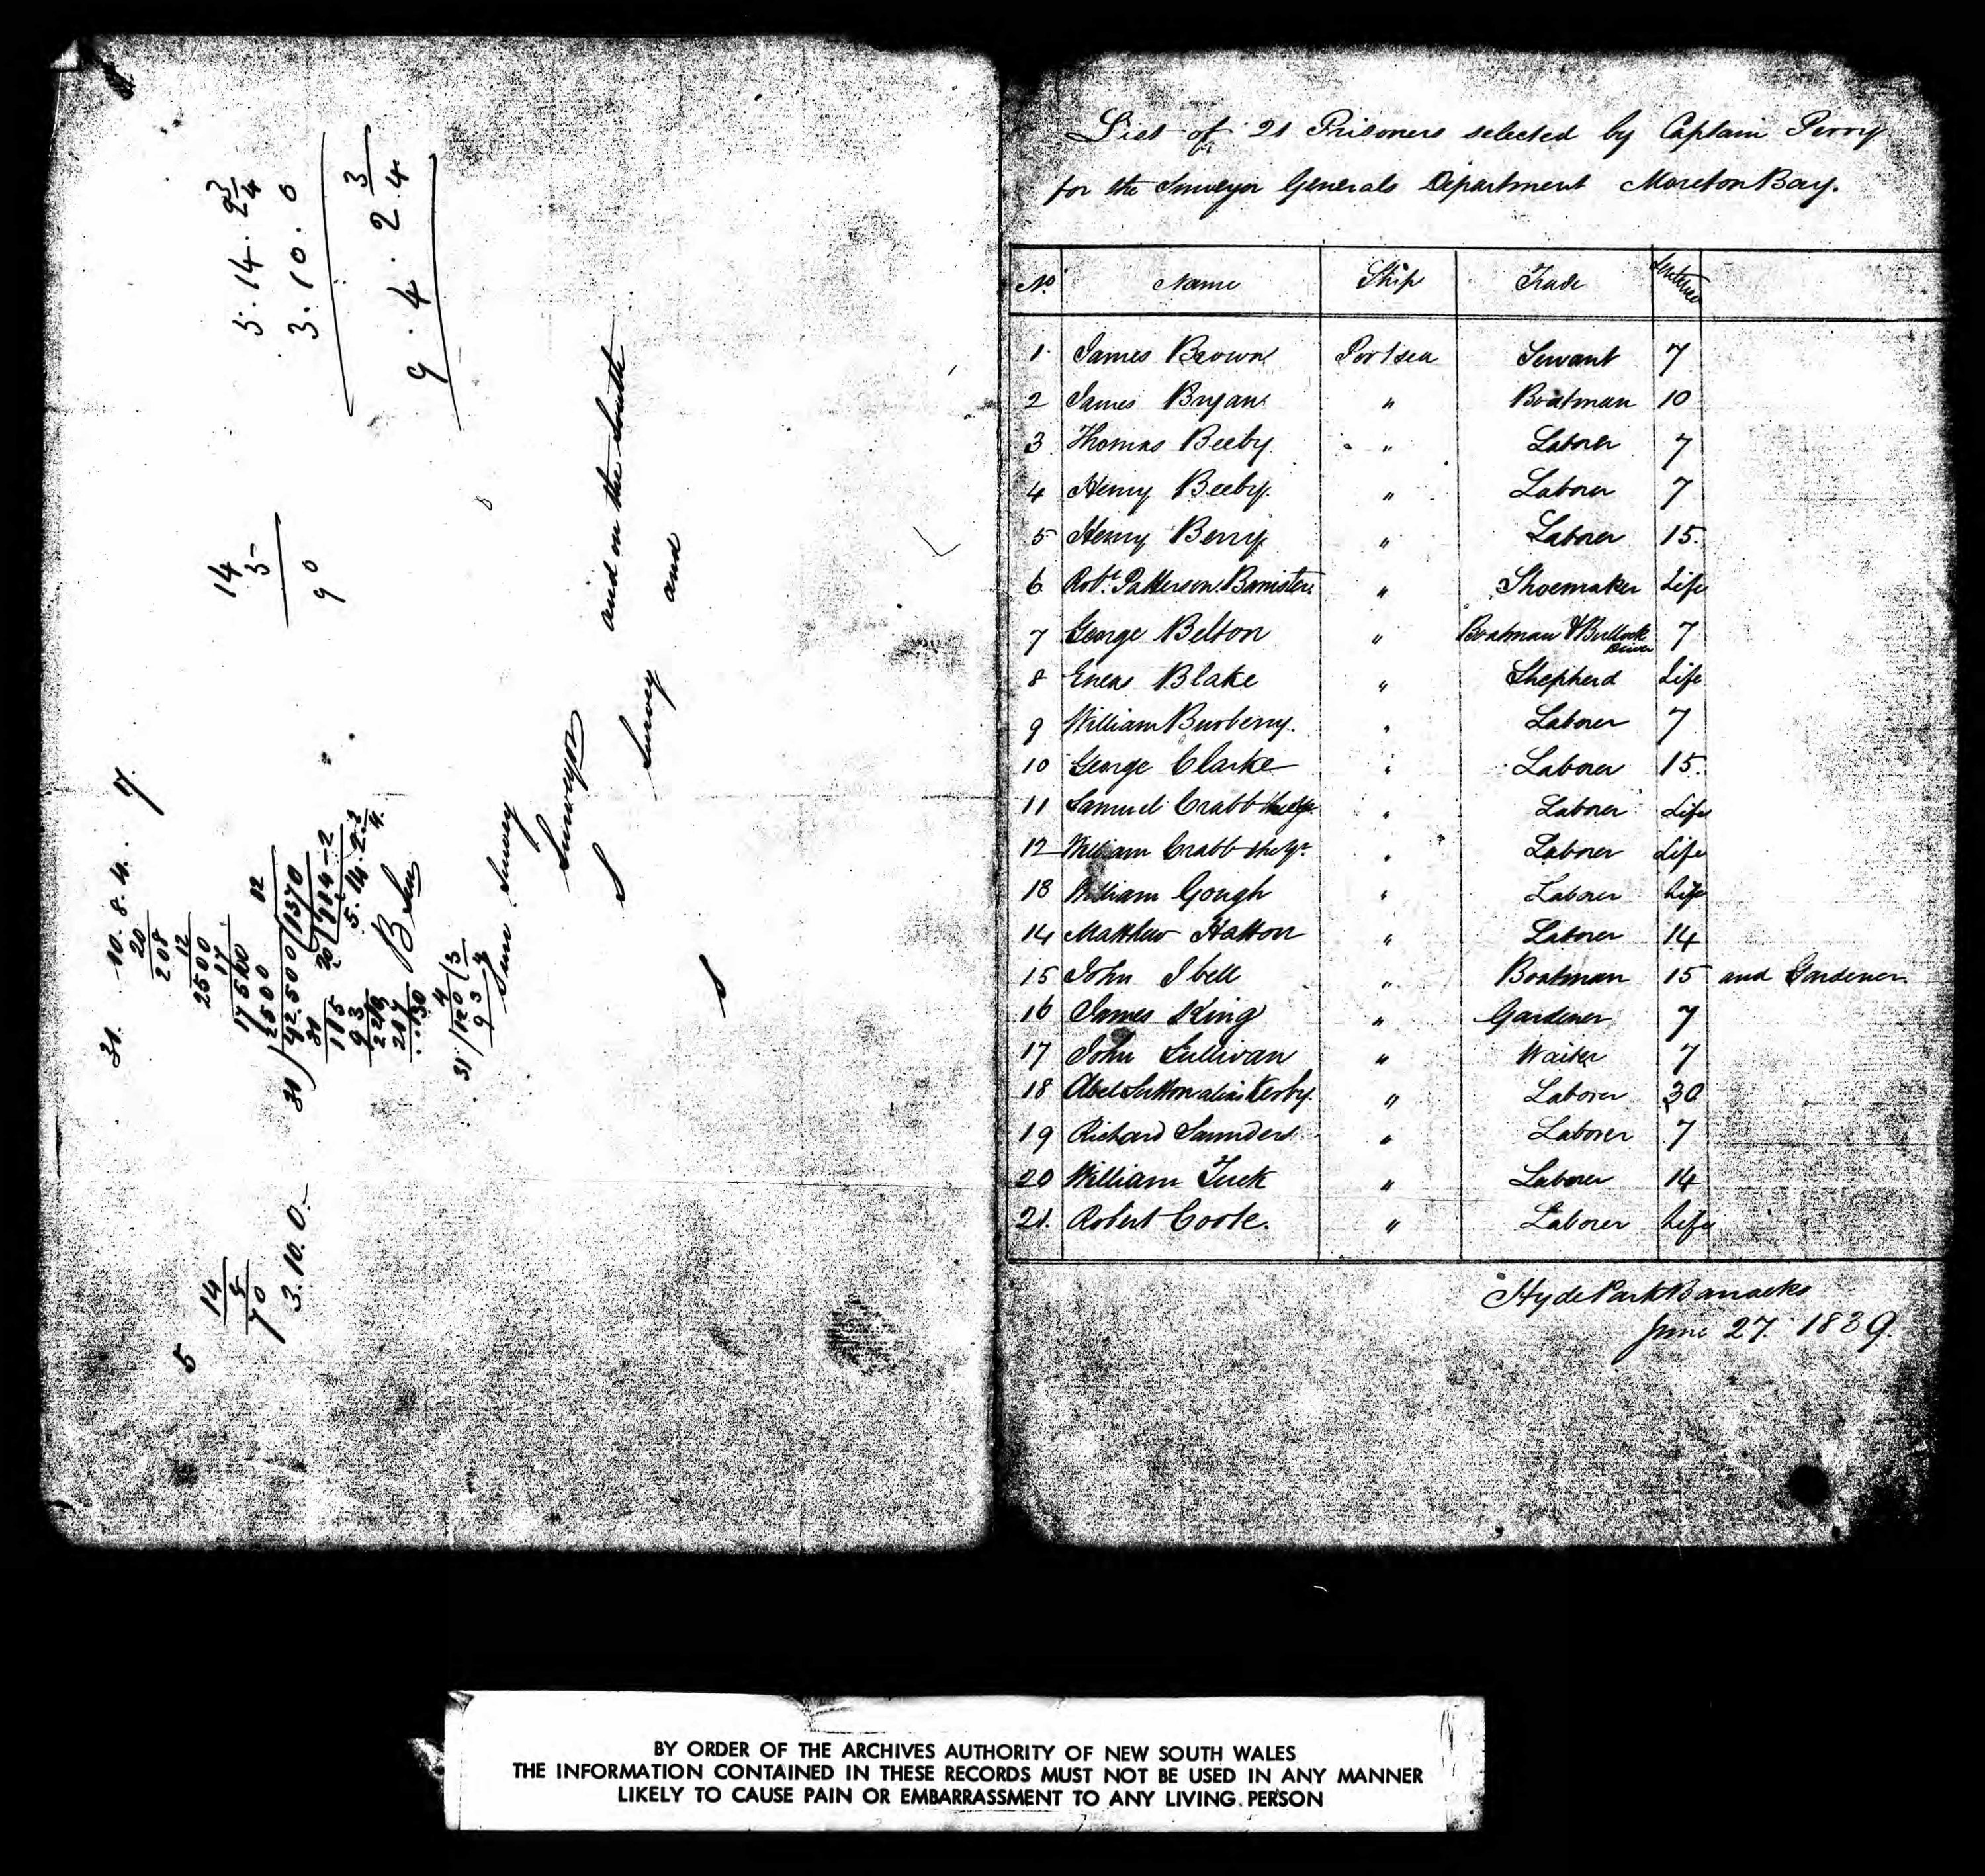 5. 14. 2 3/4
3. 10. 0
9. 4. 2 3/4
14
5
90
31. 10. 8. 4. 7.
20
208
12
2500
17
17500
2500
31) 42500 (1370
31
115
93
220
217
30
4
31) 120 (3
93
5. 14. 2 3/4
B
Survey
Surveyor
and on the South
S Survey and
S
14
5
70
3. 10. 0.
5
List of 21 Prisoners selected by Captain Perry
for the Surveyor Generals Department Moreton Bay.
No. Name Ship Trade Sentence
1. James Brown Portsea Servant 7
2 James Bryan " Boatman 10
3 Thomas Beeby " Laborer 7
4 Henry Beeby. " Laborer 7
5 Henry Berry " Laborer 15.
6 Robt. Patterson Banister. " Shoemaker Life
7 George Belton " Boatman & Bullock Driver 7
8 Eneas Blake " Shepherd Life
9 William Burberry. " Laborer 7
10 George Clarke " Laborer 15.
11 Samuel Crabb " Laborer Life
12 William Crabb " Laborer Life
13 William Gough " Laborer Life
14 Matthew Hatton " Laborer 14
15 John Ibell " Boatman 15 and Gardener.
16 James King " Gardener 7
17 John Sullivan " Waiter 7
18 Abel Sutton alias Kerby. " Laborer 30
19 Richard Saunders " Laborer 7
20 William Tuck " Laborer 14
21. Robert Coote. " Laborer Life
Hyde Park Barracks
June 27. 1839.
BY ORDER OF THE ARCHIVES AUTHORITY OF NEW SOUTH WALES
THE INFORMATION CONTAINED IN THESE RECORDS MUST NOT BE USED IN ANY MANNER
LIKELY TO CAUSE PAIN OR EMBARRASSMENT TO ANY LIVING PERSON